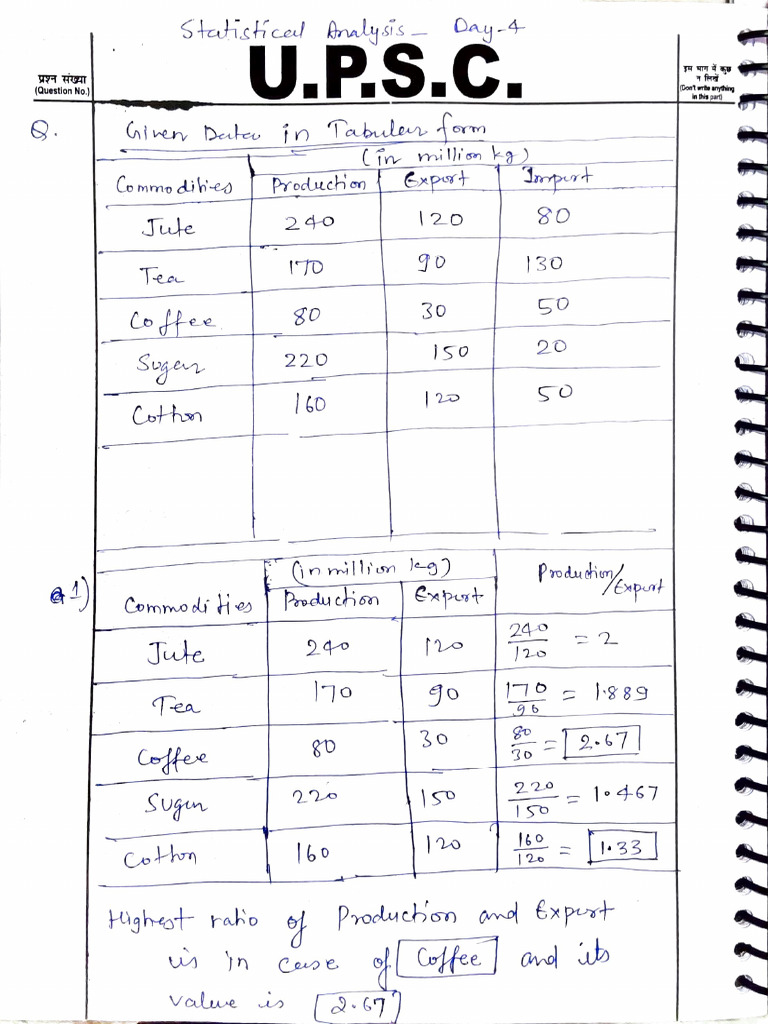 Statistical Analysis - Day-4
प्रश्न संख्या
(Question No.)
U.P.S.C.
इस भाग में कुछ
न लिखें
(Don't write anything
in this part)
Q. Given Data in Tabular form
(in million kg)
Commodities Production Export Import
Jute 240 120 80
Tea 170 90 130
Coffee 80 30 50
Sugar 220 150 20
Cotton 160 120 50
1) (in million kg) Production/Export
Commodities Production Export
Jute 240 120 240/120 = 2
Tea 170 90 170/90 = 1.889
Coffee 80 30 80/30 = 2.67
Sugar 220 150 220/150 = 1.467
Cotton 160 120 160/120 = 1.33
Highest ratio of Production and Export
is in case of Coffee and its
value is 2.67